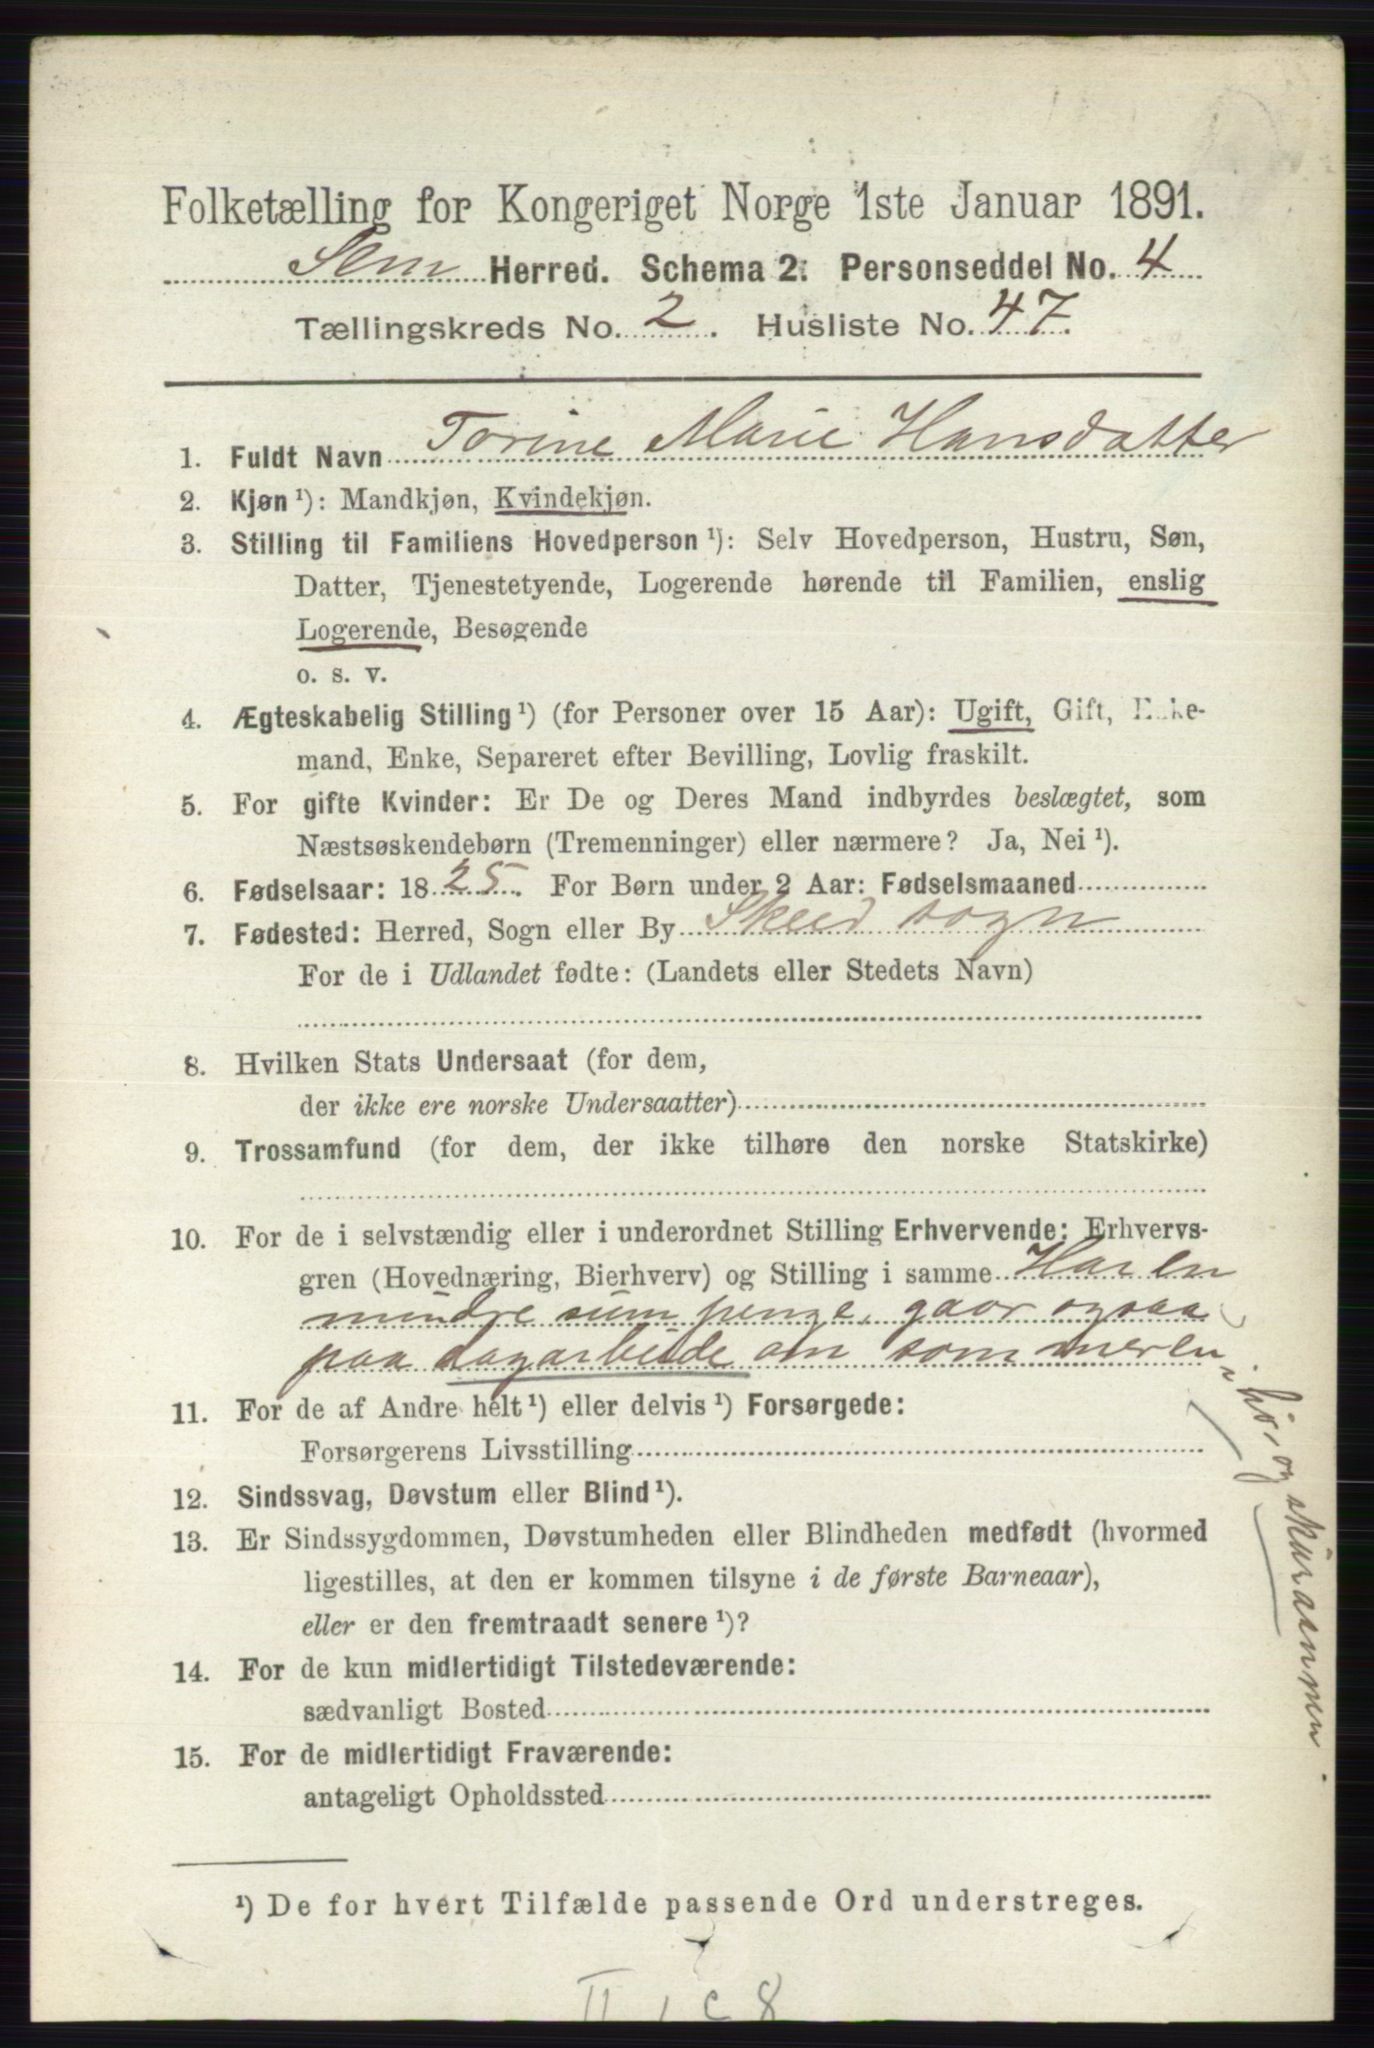 Folketælling for Kongeriget Norge 1ste Januar 1891.
Sem Herred. Schema 2. Personseddel No. 4
Tællingskreds No. 2. Husliste No. 47.
1. Fuldt Navn Torine Marie Hansdatter
2. Kjøn ¹): Mandkjøn, Kvindekjøn.
3. Stilling til Familiens Hovedperson ¹): Selv Hovedperson, Hustru, Søn,
Datter, Tjenestetyende, Logerende hørende til Familien, enslig
Logerende, Besøgende
o. s. v.
4. Ægteskabelig Stilling ¹) (for Personer over 15 Aar): Ugift, Gift, Enke-
mand, Enke, Separeret efter Bevilling, Lovlig fraskilt.
5. For gifte Kvinder: Er De og Deres Mand indbyrdes beslægtet, som
Næstsøskendebørn (Tremenninger) eller nærmere? Ja, Nei ¹).
6. Fødselsaar: 1825. For Børn under 2 Aar: Fødselsmaaned
7. Fødested: Herred, Sogn eller By Skeid sogn
For de i Udlandet fødte: (Landets eller Stedets Navn)
8. Hvilken Stats Undersaat (for dem,
der ikke ere norske Undersaatter)
9. Trossamfund (for dem, der ikke tilhøre den norske Statskirke)
10. For de i selvstændig eller i underordnet Stilling Erhvervende: Erhvervs-
gren (Hovednæring, Bierhverv) og Stilling i samme Har en
mindre sum penge, gaar ogsaa
paa dagarbeide om sommeren
i hö, og skuraannen.
11. For de af Andre helt ¹) eller delvis ¹) Forsørgede:
Forsørgerens Livsstilling
12. Sindssvag, Døvstum eller Blind ¹).
13. Er Sindssygdommen, Døvstumheden eller Blindheden medfødt (hvormed
ligestilles, at den er kommen tilsyne i de første Barneaar),
eller er den fremtraadt senere ¹)?
14. For de kun midlertidigt Tilstedeværende:
sædvanligt Bosted
15. For de midlertidigt Fraværende:
antageligt Opholdssted
¹) De for hvert Tilfælde passende Ord understreges.
II 1 c 8